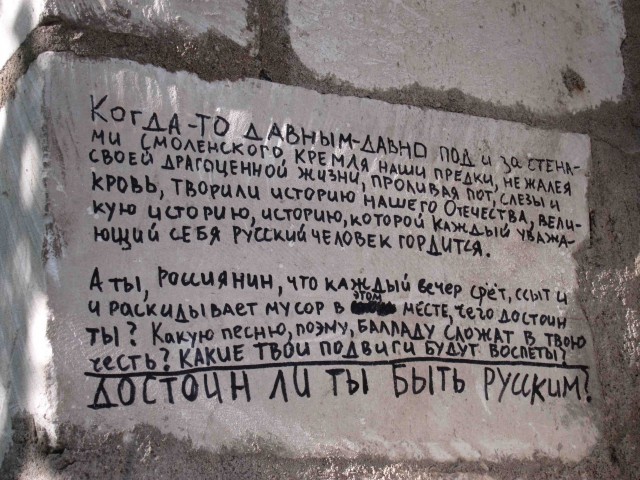 Когда-то давным-давно под и за стена-
ми Смоленского Кремля наши предки, не жалея
своей драгоценной жизни, проливая пот, слёзы и
кровь, творили историю нашего Отечества, вели-
кую историю, историю, которой каждый уважа-
ющий себя русский человек гордится.
А ты, россиянин, что каждый вечер срёт, ссыт и
и раскидывает мусор в этом месте, чего достоин
ты? Какую песню, поэму, балладу сложат в твою
честь? Какие твои подвиги будут воспеты?
Достоин ли ты быть русским?